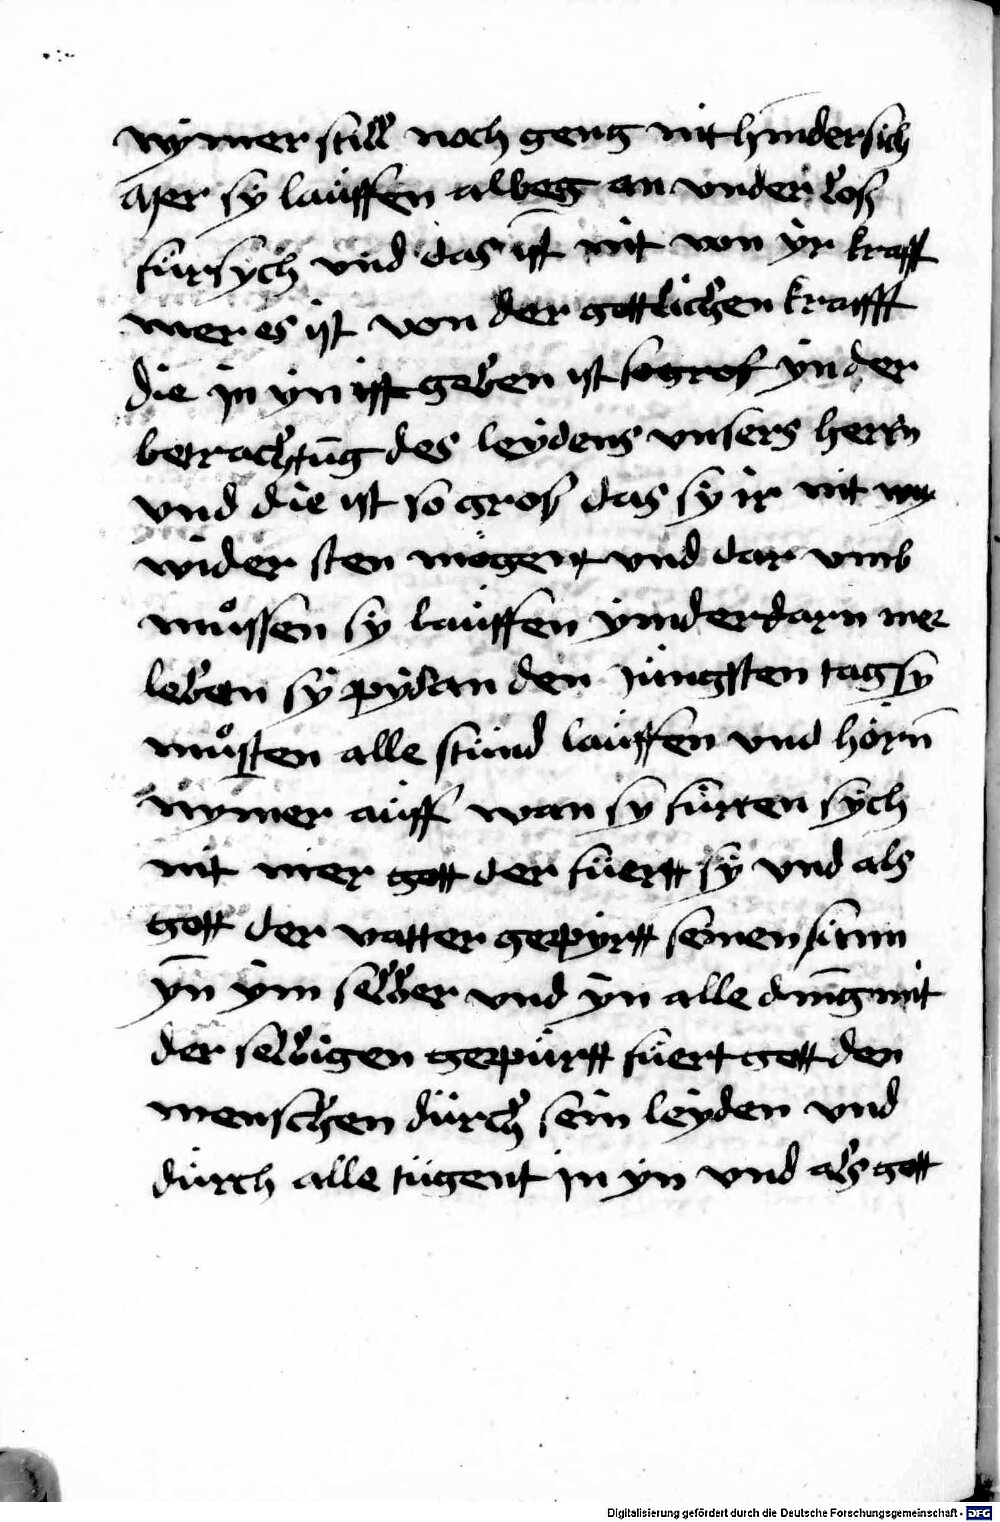 nymer still noch geng nit hindersich
aper sy lauffen albeg an underlos
fursych vnd das ist nit von yr krafft
mer es ist von der gottlichen krafft
die jn yn ist geben ist so gros yn der
betrachtung des leydens vnsers herrn
vnd die ist so gros das sy ir nit
wider sten mogent vnd dar vmb
muͦssen sy lauffen ymderdarn mer
lebetn sy pys an den jungsten tag sy
muͦsten alle stund lauffen vnd horn̄
nymer auff wan sy furten sych
nit mer gott der fuertt sy vnd als
gott der vatter gepyrtt seinen sunn
yn̄ ym selber vnd yn alle ding mit
der selbigen gepurtt fuert gott den
menschen durch sein leyden vnd
durch alle tugent jn yn vnd als gott
Digitalisierung gefördert durch die Deutsche Forschungsgemeinschaft - DFG